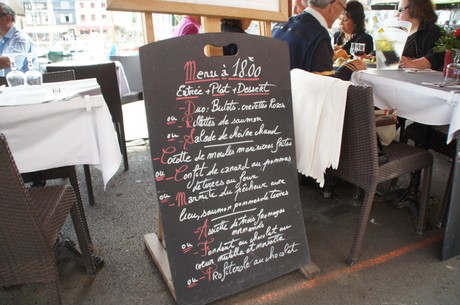 Menu à 18€00
Entrée + Plat + Dessert
- Duo: Bulots, crevettes Roses
ou - Rillettes de saumon
ou - Salade de chèvre chaud
- Cocotte de moules marinières frites
ou - Confit de canard aux pommes
de terres au four
ou - Marmite du pêcheur avec
lieu, saumon pommes de terres
- Assiette de trois fromages
normands
ou - Fondant au chocolat
coeur
ou - Profiterole au chocolat